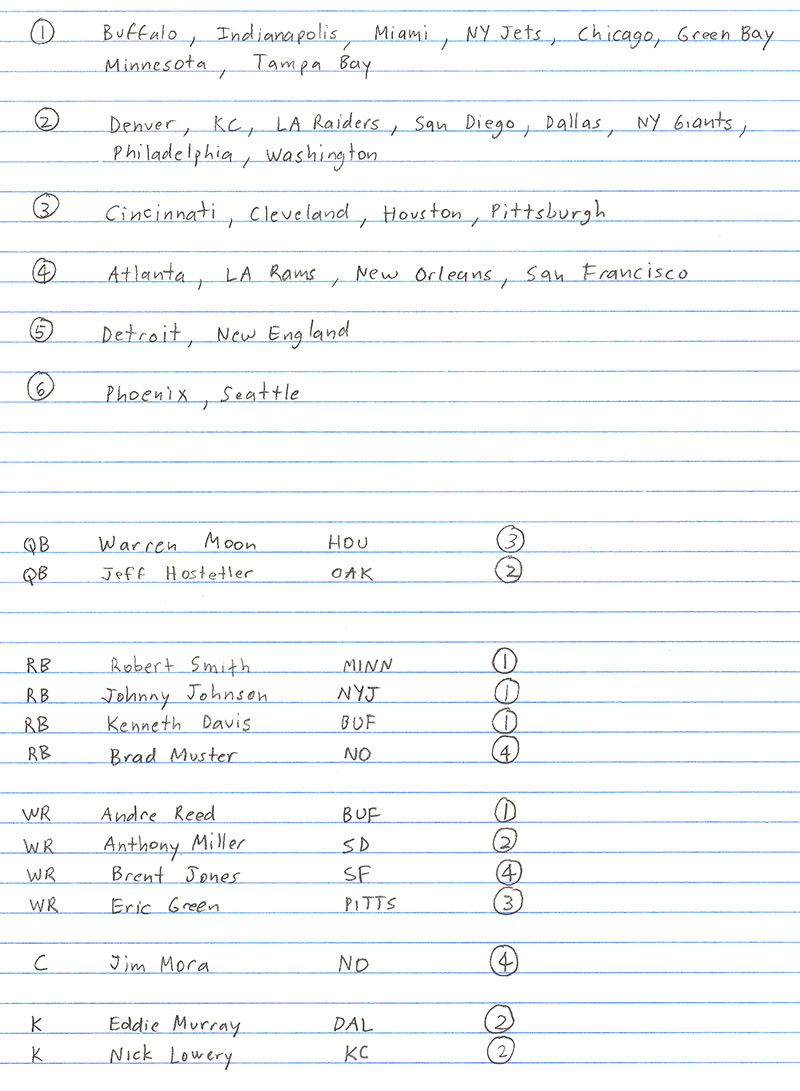 ① Buffalo, Indianapolis, Miami, NY Jets, Chicago, Green Bay
Minnesota, Tampa Bay
② Denver, KC, LA Raiders, San Diego, Dallas, NY Giants,
Philadelphia, Washington
③ Cincinnati, Cleveland, Houston, Pittsburgh
④ Atlanta, LA Rams, New Orleans, San Francisco
⑤ Detroit, New England
⑥ Phoenix, Seattle
QB Warren Moon HOU ③
QB Jeff Hostetler OAK ②
RB Robert Smith MINN ①
RB Johnny Johnson NYJ ①
RB Kenneth Davis BUF ①
RB Brad Muster NO ④
WR Andre Reed BUF ①
WR Anthony Miller SD ②
WR Brent Jones SF ④
WR Eric Green PITTS ③
C Jim Mora NO ④
K Eddie Murray DAL ②
K Nick Lowery KC ②